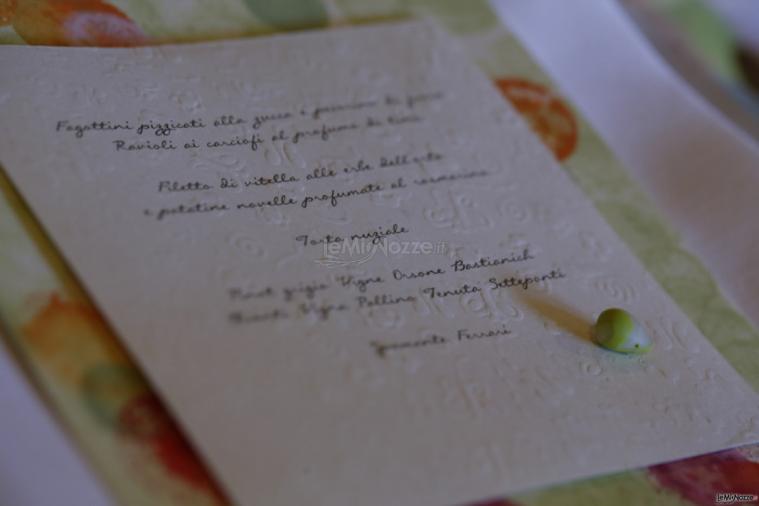 Fagottini pizzicati alla zucca e pecorino di
Ravioli ai carciofi al profumo di timo
Filetto di vitella alle erbe dell'orto
e patatine novelle profumate al rosmarino
Torta nuziale
LeMieNozze.it
Pinot grigio Vigne Orsone Bastianich
Chianti Vigna Pallino Tenuta Setteponti
Spumante Ferrari
LeMieNozze.it